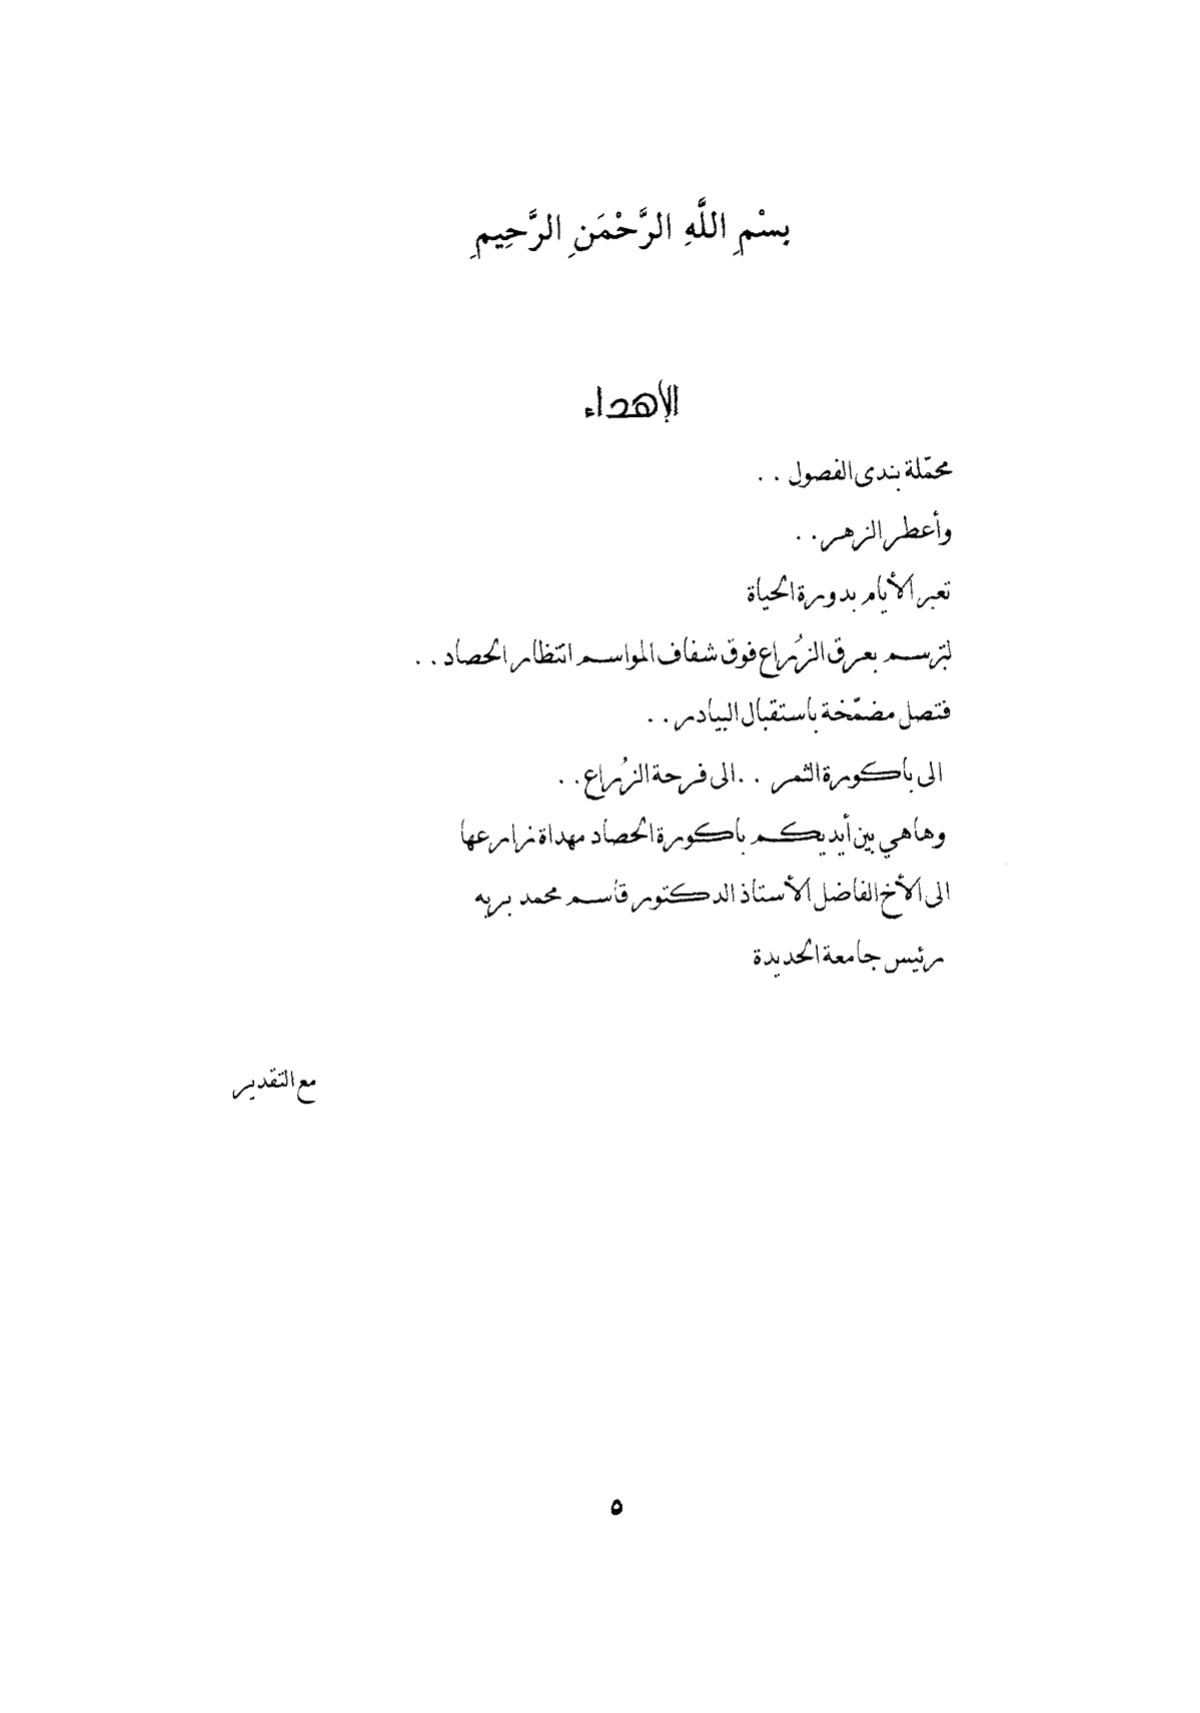 بِسْمِ اللَّهِ الرَّحْمَنِ الرَّحِيمِ
الإهداء
محمّلة بندى الفصول . .
وأعطر الزهر . .
تعبر الأيام بدورة الحياة
لترسم بعرق الزُراع فوق شفاف المواسم انتظار الحصاد . .
فتصل مضمّخة باستقبال البيادر . .
الى باكورة الثمر . . الى فرحة الزُراع . .
وهاهي بين أيديكم باكورة الحصاد مهداة زارعها
الى الأخ الفاضل الأستاذ الدكتور قاسم محمد بريه
رئيس جامعة الحديدة
مع التقدير
٥